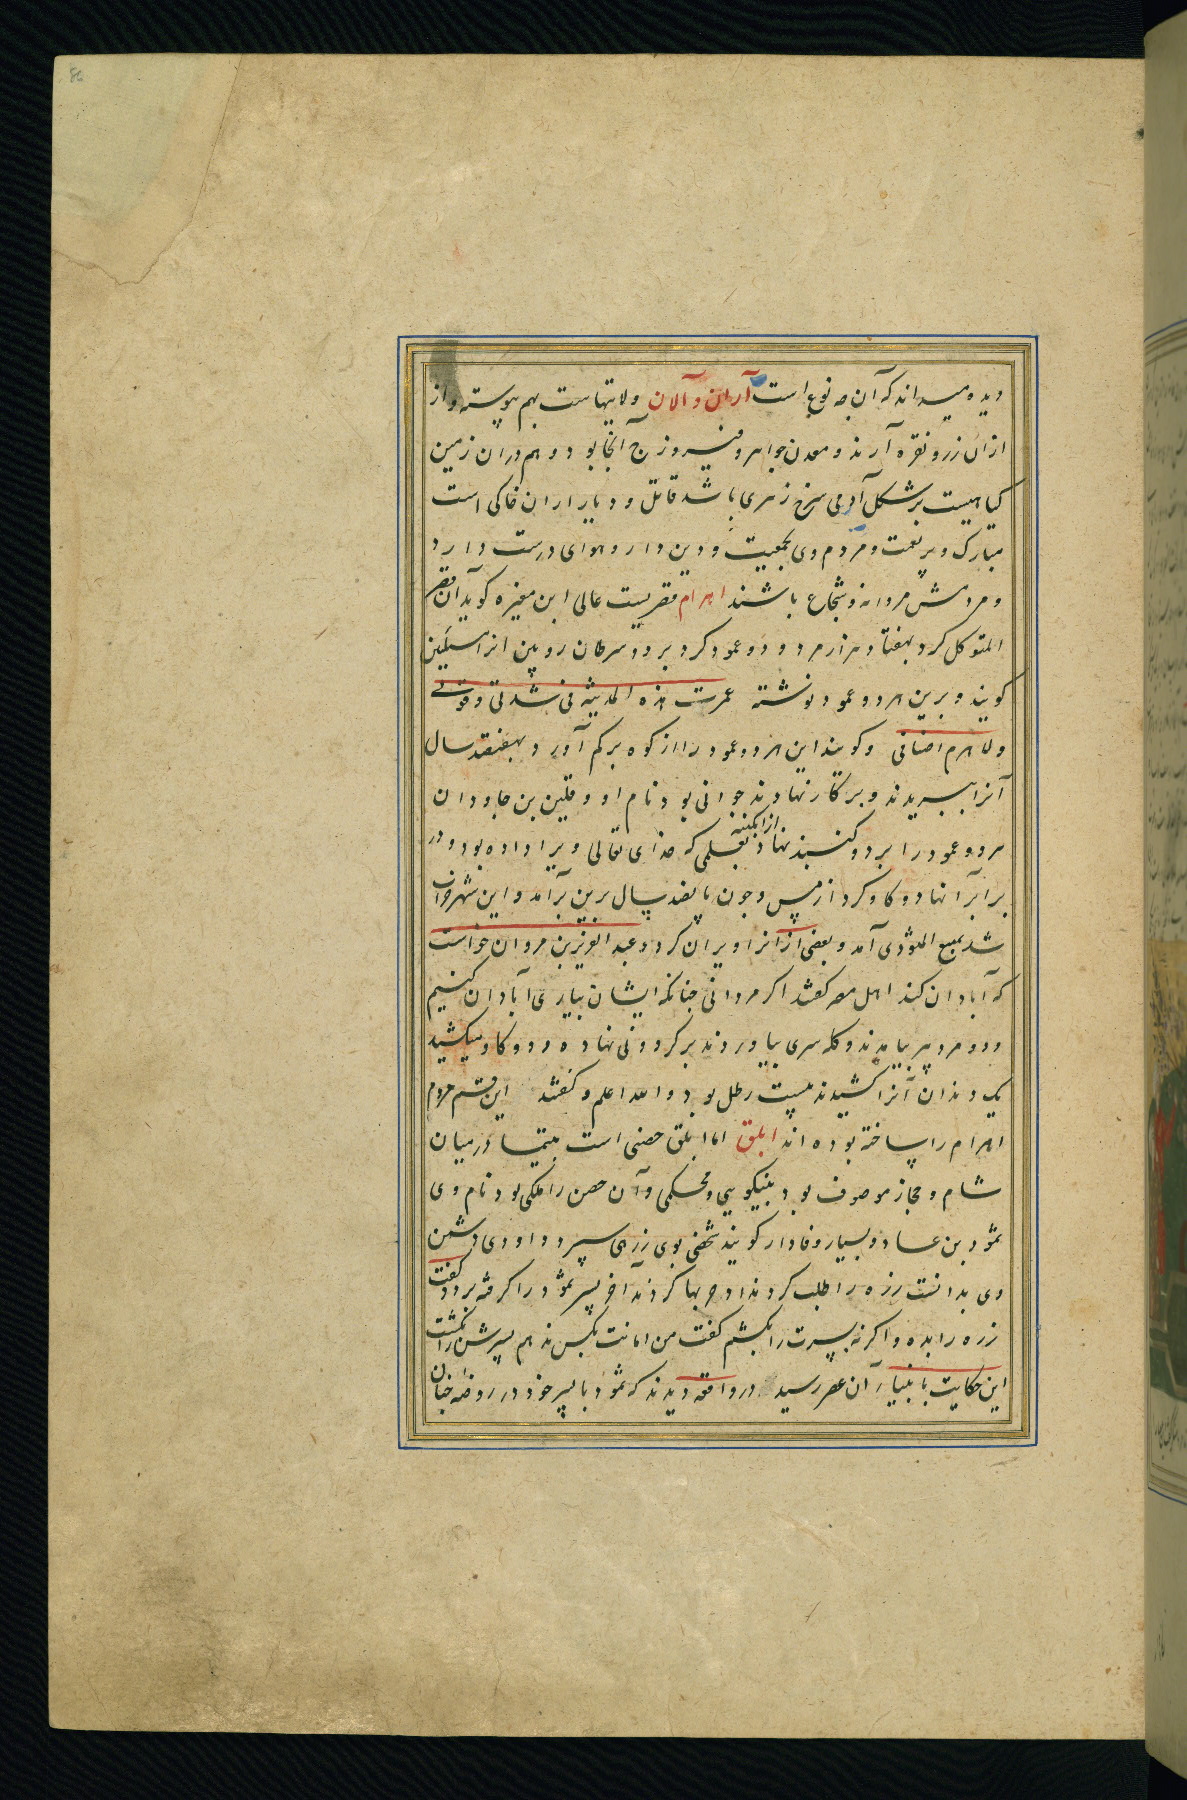 86
دیده میداند که آن چه نوع است آران و آلان ولایتهاست بهم پیوسته و از
ازان زر و نقره آرند و معدن جواهر و فیروزج آنجا بود و هم دران زمین
کیاهیست بر شکل آدمی سرخ زهری باشد قاتل و دیار اران خاکی است
مبارک و پر نعمت و مردم وی بجمعیت و دین دار و هوای درست دارد
و مردمش مردانه و شجاع باشند اهرام قصریست عالی ابن مغیره کوید آن قصر
المتوکل کرد بهفتاد هزار مرد و دو عمود کرد بر دو سرطان رویین انرا
کویند و برین هر دو عمود نوشته عمرت هذه المدینه فی شدتی و قوتی
ولا هرم اضنانی و کویند این هر دو عمود را از کوه برکم آورد بهفتصد سال
آنرا ببریدند و بر کار نهادند جوانی بود نام او بن جاودان
هر دو عمود را بر دو کنبد نهاد از ابکینه بعلمی که خدای تعالی ویرا داده بود و در
برابر آنها دو کاو کرد از مس و چون پانصد سال برین برآمد و این شهر خراب
شد آمد و بعضی از انرا ویران کرد و عبد العزیز بن مروان خواست
که آبادان کند اهل مصر کفتند اکر مردانی چنانکه ایشان بیاری آبادان کنیم
و دو مرد پیر بیامدند و کله سری بیاوردند بر کردونی نهاده و دو کاو میکشید
یک دندان آنرا کشیدند بیست رطل بود والله اعلم و کفتند این قسم مردم
اهرام را ساخته بوده اند ابلق اما ابلق حصنی است بتیما در میان
شام و حجاز موصوف بود بنیکویی و محکمی و آن حصن را ملکی بود نام وی
ثمود بن عاد و بسیار وفادار کویند شخصی بوی زرهی سپرد و او دی دشمن
وی بدانست زره را طلب کردند او بها کردند آخر پسر ثمود را کرفته بردند کفت
زره را بده و اکر نه پسرت را بکشم کفت من امانت بکس ندهم پسرش را بکشت
این حکایت بانبیاء آن عصر رسید در واقعه دیدند که ثمود با پسر خود در روضه جنان